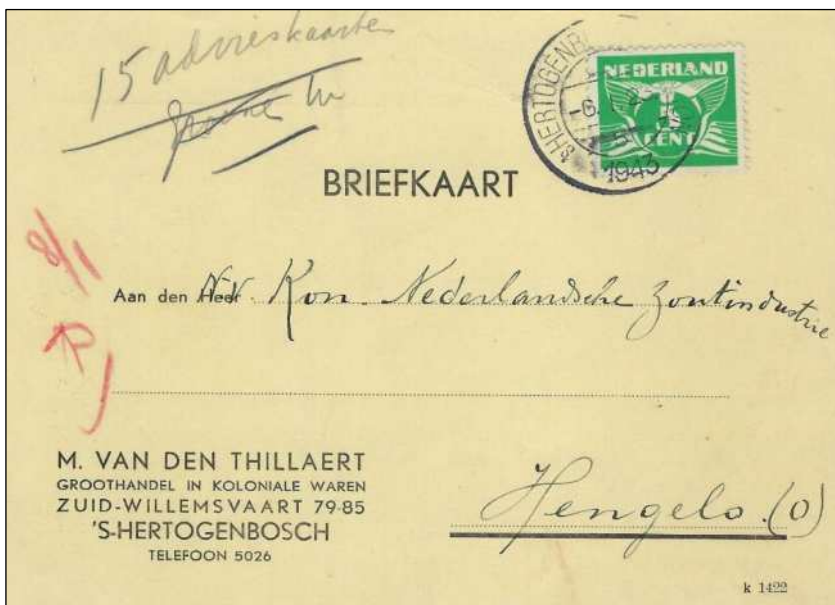 15 advieskaarten
'S HERTOGENB
-6.1.
1943
NEDERLAND
5
CENT
BRIEFKAART
8/1
Aan den Heer N.V. Kon. Nederlandsche Zoutindustrie
M. VAN DEN THILLAERT
GROOTHANDEL IN KOLONIALE WAREN
ZUID-WILLEMSVAART 79-85
'S-HERTOGENBOSCH
TELEFOON 5026
Hengelo. (O)
k 1422